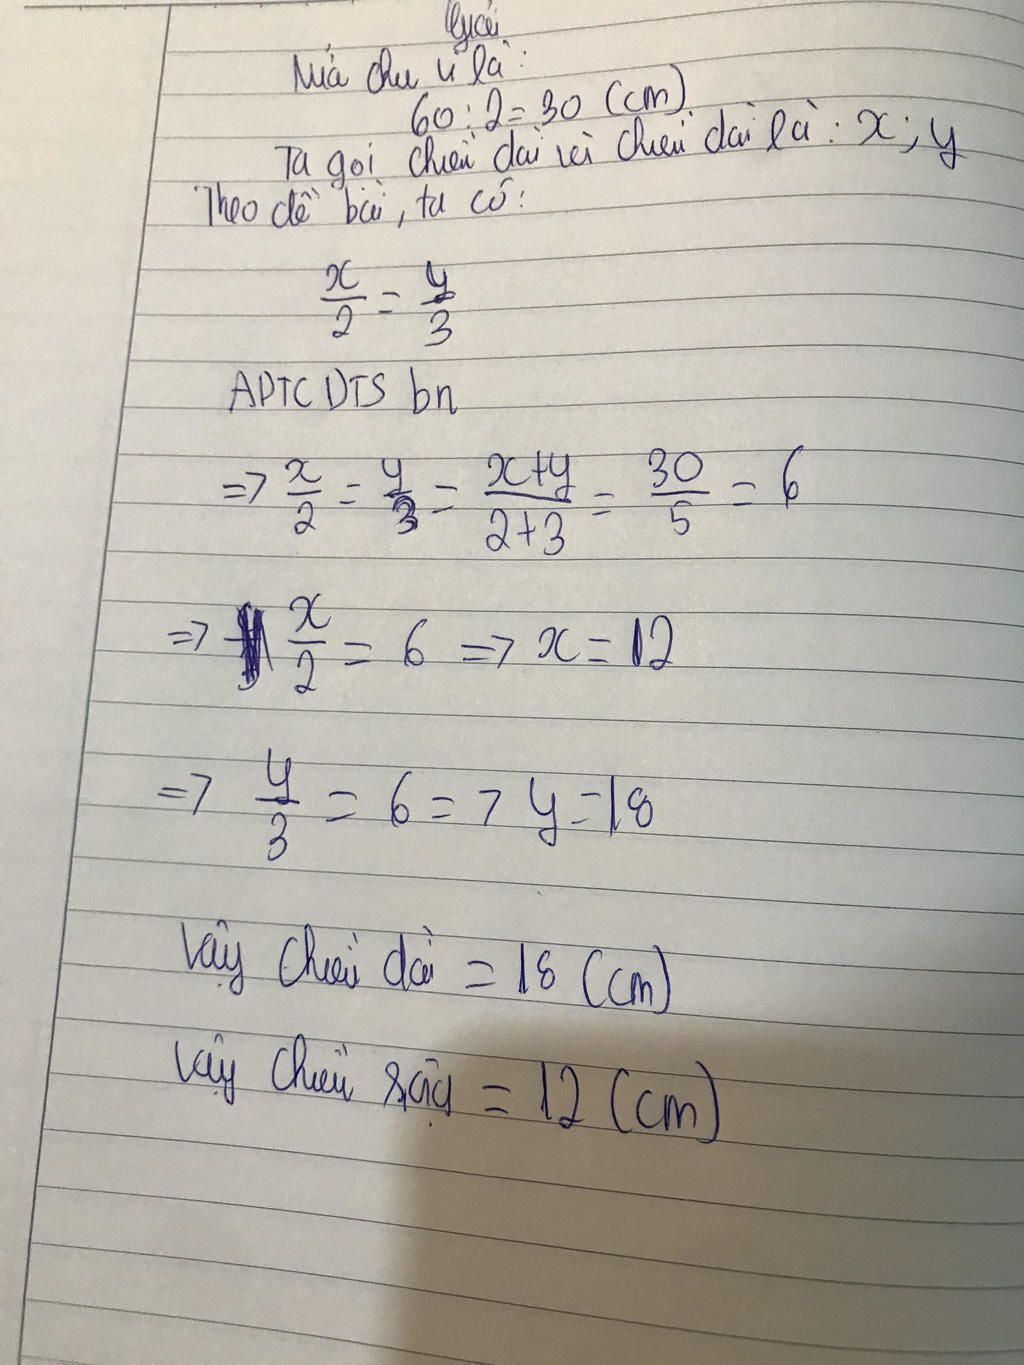 Giải
Nửa chu vi là:
60:2=30 (cm)
Ta gọi chiều dài và chiều dài là: x; y
Theo đề bài, ta có:
x/2 = y/3
ADTC DTS bn
=> x/2 = y/3 = x+y/2+3 = 30/5 = 6
=> x/2 = 6 => x = 12
=> y/3 = 6 => y = 18
Vậy chiều dài = 18 (cm)
Vậy chiều rộng = 12 (cm)